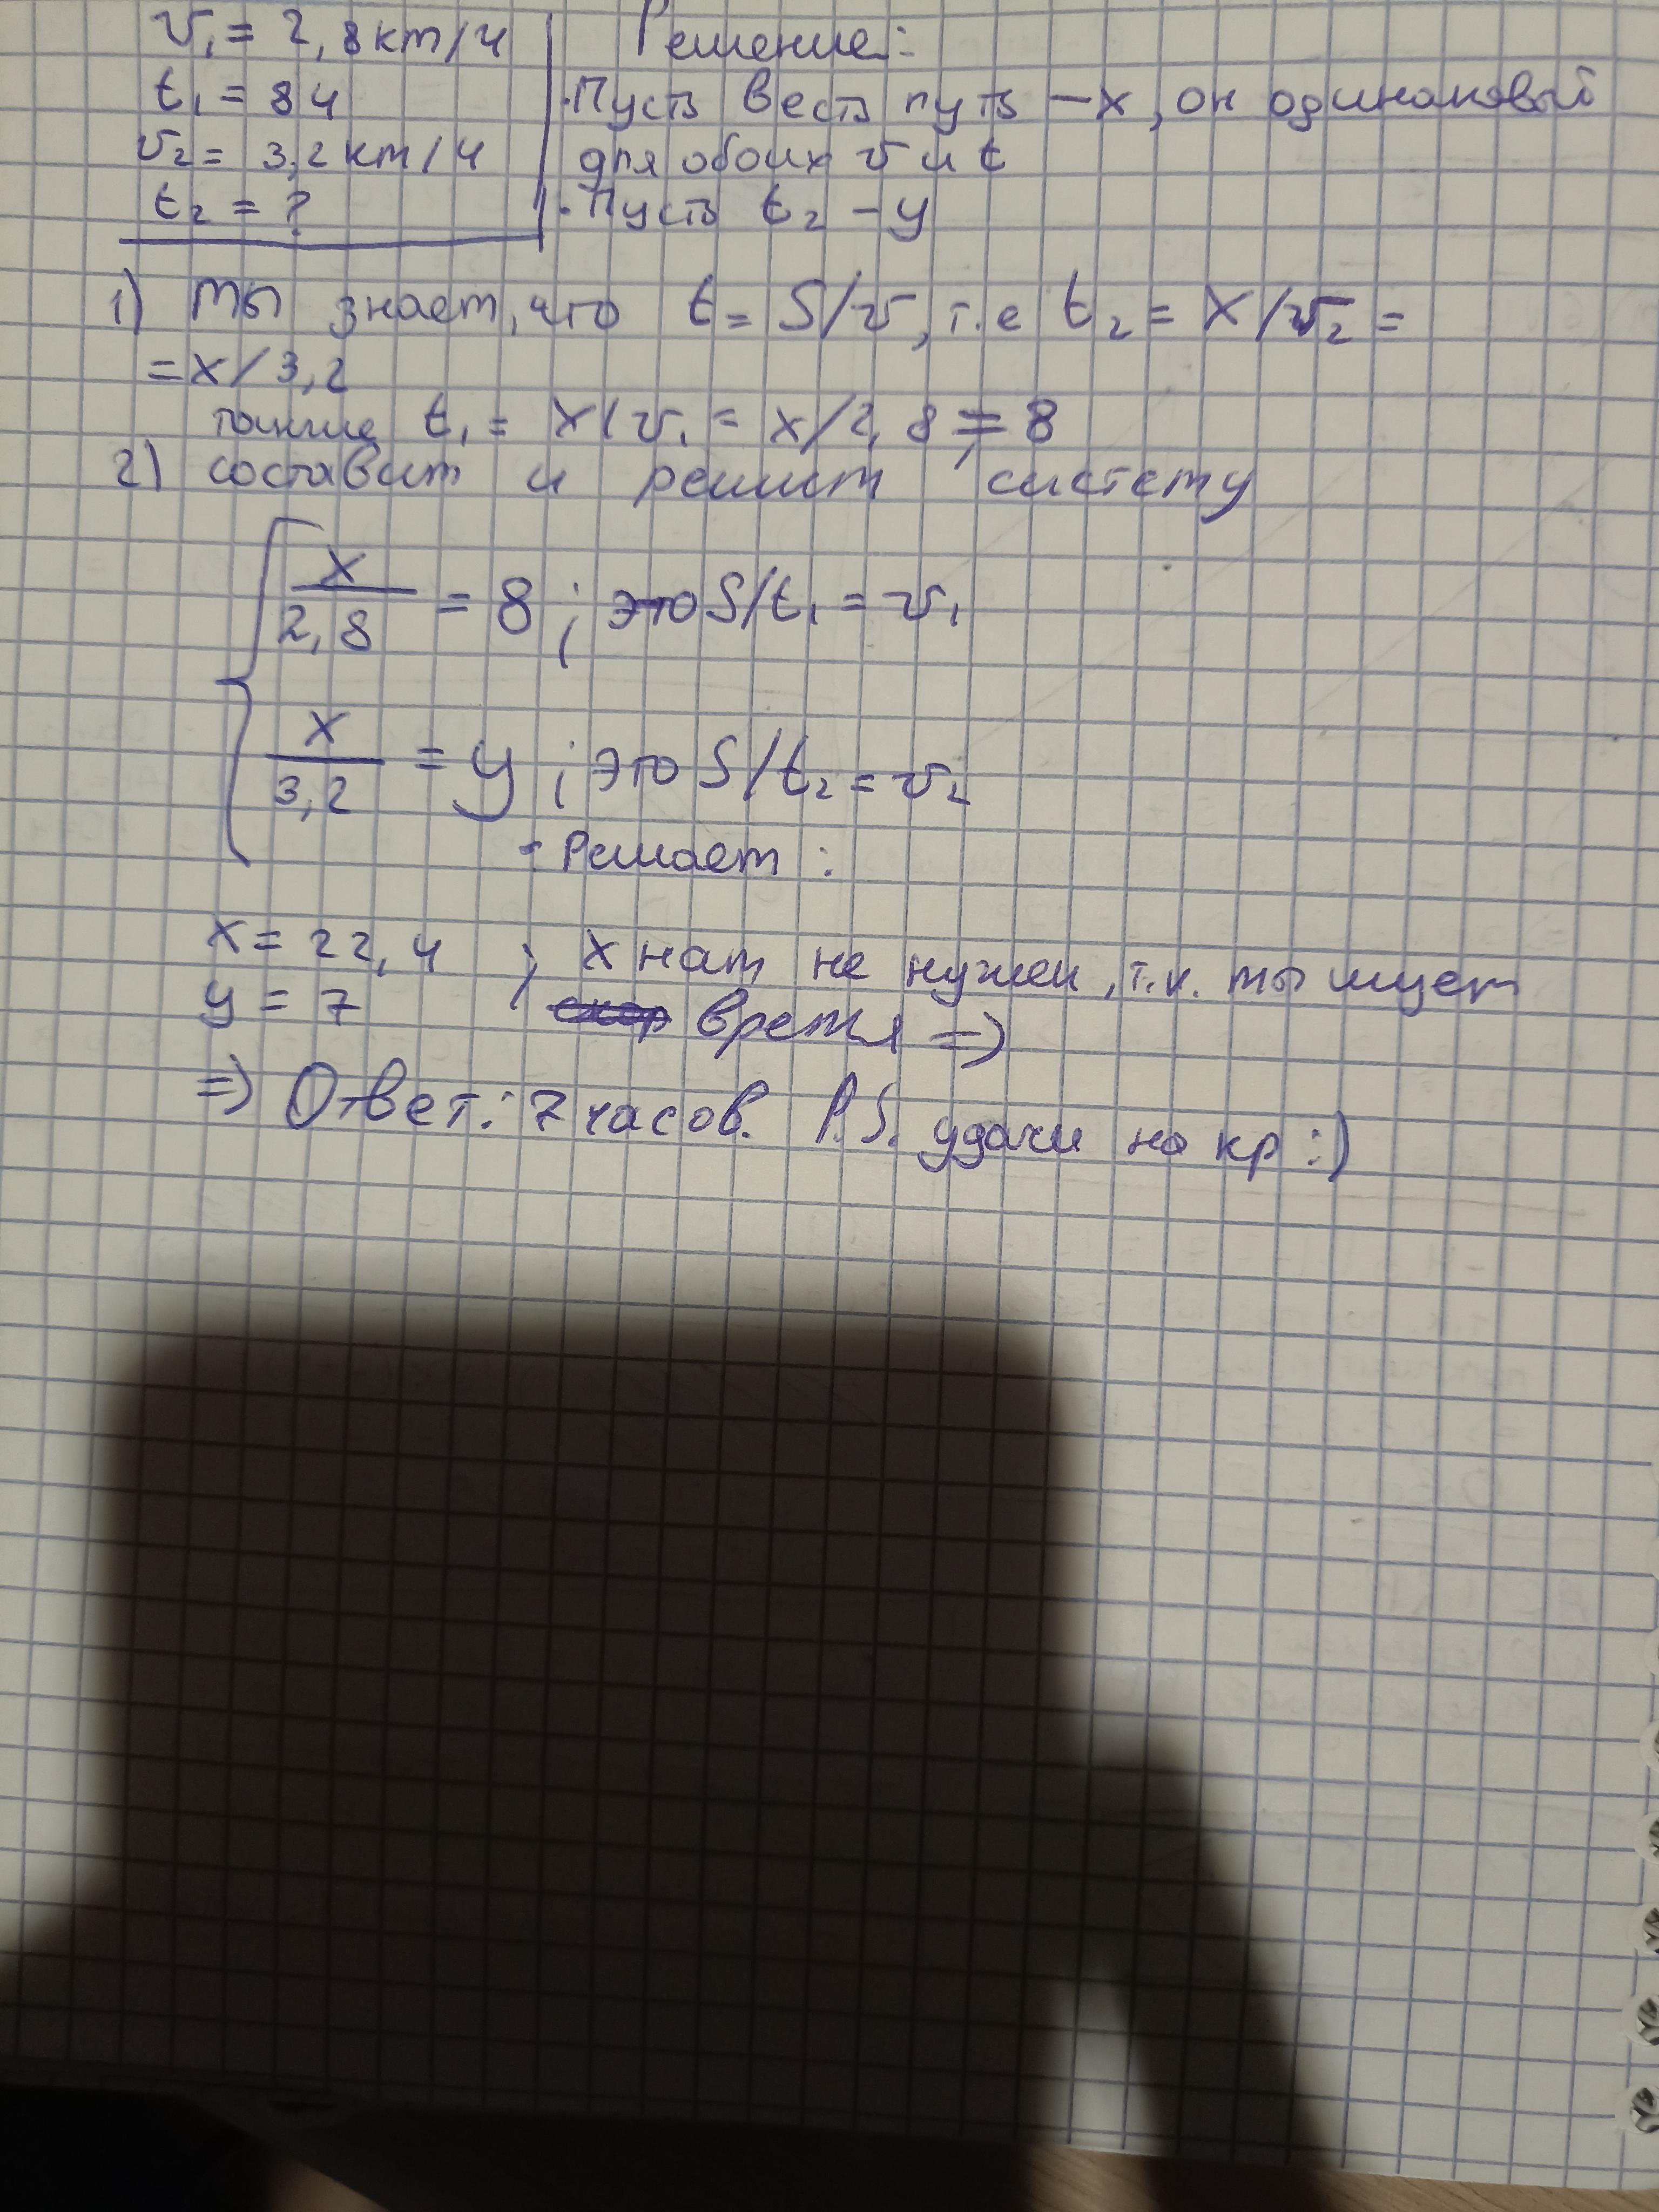 v₁ = 2,8 км/ч
t₁ = 8 ч
v₂ = 3,2 км/ч
t₂ = ?
Решение:
·Пусть весь путь – x, он одинаковый
для обоих v и t
·Пусть t₂ – y
1) мы знаем, что t = S/v, т.е t₂ = x/v₂ =
= x/3,2
также t₁ = x/v₁ = x/2,8 = 8
2) составим и решим систему
x/2,8 = 8 ; это S/t₁ = v₁
x/3,2 = y ; это S/t₂ = v₂
- Решаем :
x = 22,4 ; x нам не нужен, т.к. мы ищем
y = 7 ; время =>
=> Ответ: 7 часов. P.S. удачи на кр :)